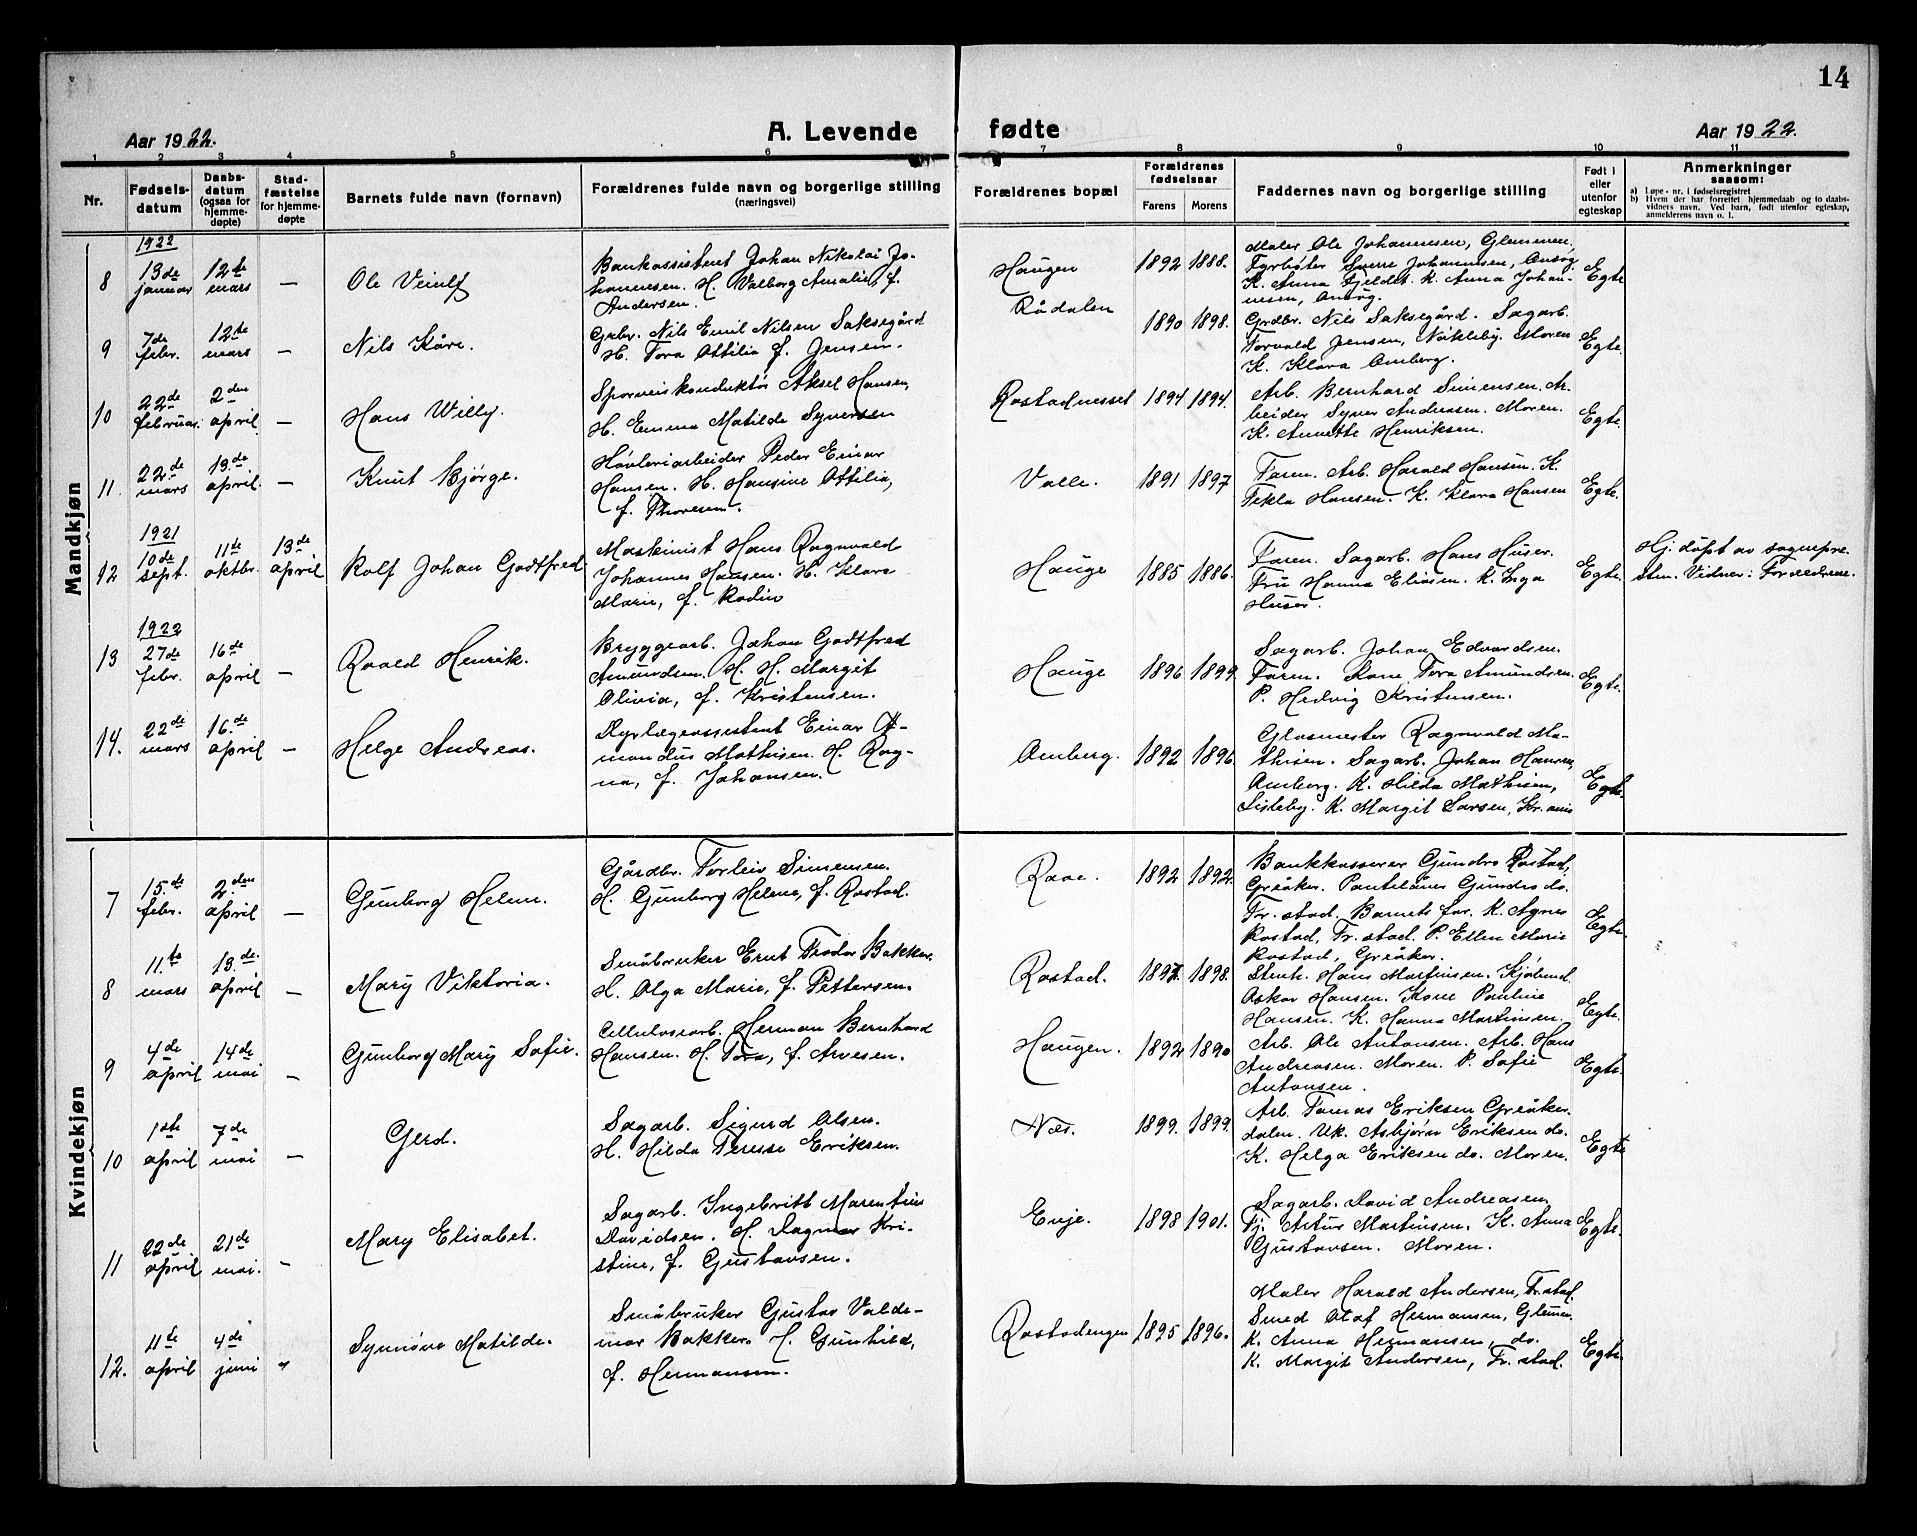 14
Aar 1922.
A. Levende
fødte
Aar 1922.
1 2 3 4 5 6 7 8 9 10 11
Nr.
Fødsels-
datum
Daabs-
datum
(ogsaa for
hjemme-
døpte)
Stad-
fæstelse
for hjemme-
døpte
Barnets fulde navn (fornavn)
Forældrenes fulde navn og borgerlige stilling
(næringsvei)
Forældrenes bopæl
Forældrenes
fødselsaar
Farens Morens
Faddernes navn og borgerlige stilling
Født i
eller
utenfor
egteskap
Anmerkninger
saasom:
a) Løpe-nr. i fødselsregistret
b) Hvem der har forrettet hjemmedaab og to daabs-
vidners navn. Ved barn, født utenfor egteskap,
anmelderens navn o. l.
Mandkjøn
1922
8 13de januar 12te mars — Ole Veiulf
Bankassistent Johan Nikolai Jo-
hannesen. H. Valborg Amalie, f.
Andersen.
Haugen
Rådalen
1892 1888.
Maler Ole Johannesen, Glemmen,
Fyrbøter Sverre Johannesen, Onsøy
K. Anna Fjeldet. K. Anna Johan-
nesen, Onsøy.
Egte
9 7de febr. 12te mars — Nils Kåre.
Grbr. Nils Emil Nilsen Saksegård
H. Tora Ottilia f. Jensen.
1890 1898.
Grdbr. Nils Saksegård. Sagarb.
Torvald Jensen, Nøkleby. Moren
K. Klara Omberg.
Egte.
10 22de februar. 2den april. — Hans Willy.
Sporveiskonduktør Aksel Hansen,
H. Emma Matilde Syversen
Rostadnesset 1894 1894.
Arb. Bernhard Simensen. Ar-
beider Syver Andreasen. Moren.
K. Annette Henriksen.
Egte.
11. 22de mars 13.de april. — Knut Bjørge.
Høvleriarbeider Peder Einar
Hansen. H. Hansine Ottilia,
f. Thoresen.
Valle. 1891 1897
Faren. Arb. Harald Hansen. K.
Tekla Hansen. K. Klara Hansen
Egte.
1921
12 10de sept. 11te oktbr. 13de april Rolf Johan Godtfred
Maskinist Hans Ragnvald
Johannes Hansen. H. Klara
Marie, f. Rodin
Hauge 1885 1886.
Faren. Sagarb. Hans Huser.
Fru Hanna Eliasen. K. Inga
Huser.
Egte.
Hj. døpt av sognepre-
sten. Vidner: Forældrene.
1922
13 27de febr. 16de april — Roald Henrik.
Bryggearb. Johan Godtfred
Amundsen. H. H. Margit
Olivia, f. Kristensen.
Hauge 1896 1899.
Sagarb. Johan Edvardsen.
Faren. Kone Tora Amundsen.
P. Hedvig Kristensen.
Egte.
14. 22de mars 16.de april — Helge Andreas.
Dyrlægeassistent Einar A-
mandus Mathisen. H. Rag-
na, f. Johansen.
Omberg. 1892 1896.
Glasmester Ragnvald Ma-
thisen. Sagarb. Johan Hansen,
Omberg. K. Hilda Mathisen,
Lisleby. K. Margit Larsen,
Egte.
Kvindekjøn
7 15.de febr. 2.den april — Gunborg Helene.
Gårdbr. Torleiv Simensen.
H. Gunborg Helene, f. Rostad.
Raae. 1892 1892.
Bankkasserer Gundro Rostad,
Greåker. Gundro do.
Fr.stad. Barnets far. K. Agnes
Rostad, Fr.stad. P. Ellen Marie
Rostad, Greåker.
Egte.
8 11.te mars 13.de april — Mary Viktoria.
Småbruker Ernt Teodor Bakker.
H. Olga Marie, f. Pettersen.
Rostad. 1897. 1898.
Hans Martinsen.
Oskar Hansen. Kone Pauline
Hansen. K. Hanna Martinsen.
Egte.
9 4de april 14de mai — Gunborg Mary Sofie.
Cellulosearb. Herman Bernhard
Hansen. H. Tora, f. Arvesen.
Haugen. 1892 1890
Arb. Ole Antonsen. Arb. Hans
Andreasen. Moren. P. Sofie
Antonsen.
Egte.
10 1ste april 7de mai — Gerd.
Sagarb. Sigurd Olsen.
H. Hilda Terese Eriksen.
Næs. 1899. 1899.
Arb. Tomas Eriksen Greåker-
dalen. Uk. Asbjørn Eriksen do.
K. Helga Eriksen do. Moren.
Egte
11 22de april 21de mai. — Mary Elisabet.
Sagarb. Ingebritt Marentius
Davidsen. H. Dagmar Kri-
stine, f. Gustavsen.
Enje. 1898 1901.
Sagarb. David Andreasen
Tj. Artur Martinsen. K. Anna
Gustavsen. Moren.
Egte.
12. 11te april 4de juni — Synnøve Matilde.
Småbruker Gustav Valde-
mar Bakker. H. Gunhild,
f. Hermansen.
Rostadengen 1895 1896.
Maler Harald Andersen, Fr.stad.
Smed Olaf Hermansen, Glemmen.
K. Anna Hermansen, do.
K. Margit Andersen, Fr.stad.
Egte.